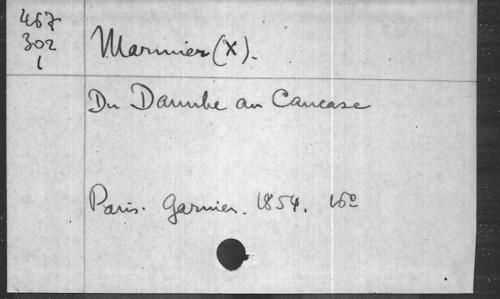 467
302
1
Marmier (X).
Du Danube au Caucase
Paris. Garnier. 1854. 16º